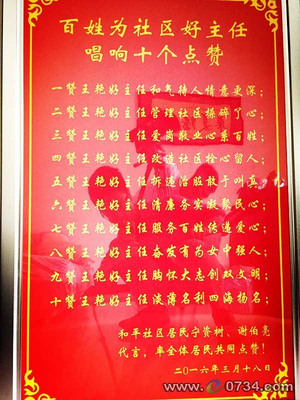 百姓为社区好主任
唱响十个点赞
一赞王艳好主任和气待人情意更深;
二赞王艳好主任管理社区操碎了心;
三赞王艳好主任爱岗敬业心系百姓;
四赞王艳好主任改造社区拴心留人;
五赞王艳好主任拆违治脏敢于叫真;
六赞王艳好主任清廉务实凝聚民心;
七赞王艳好主任服务百姓传递爱心;
八赞王艳好主任奋发有为女中强人;
九赞王艳好主任胸怀大志创双文明;
十赞王艳好主任淡薄名利四海扬名;
和平社区居民宁资树、谢伯亮
代言,率全体居民共同点赞!
二○一六年三月十八日
0734.com